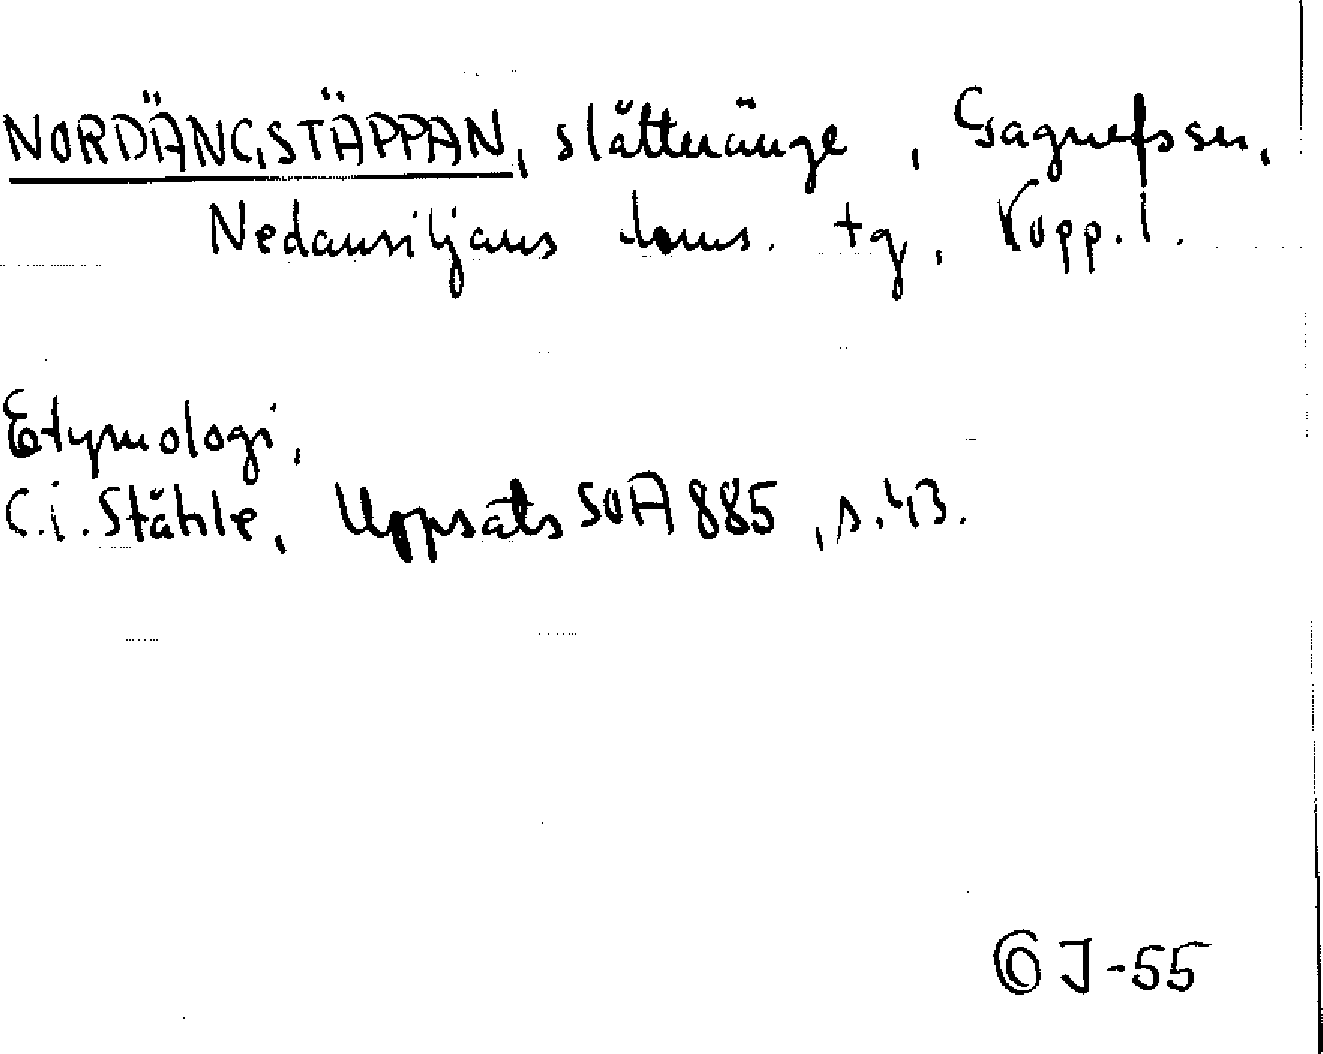 NORDÄNGSTÄPPAN, slåtteränge, Gagnefs sn,
Nedansiljans doms. tg, Kopp. l.
Etymologi,
C.i. Ståhle, Uppsats SOA 885, s. 43.
ÖJ-55